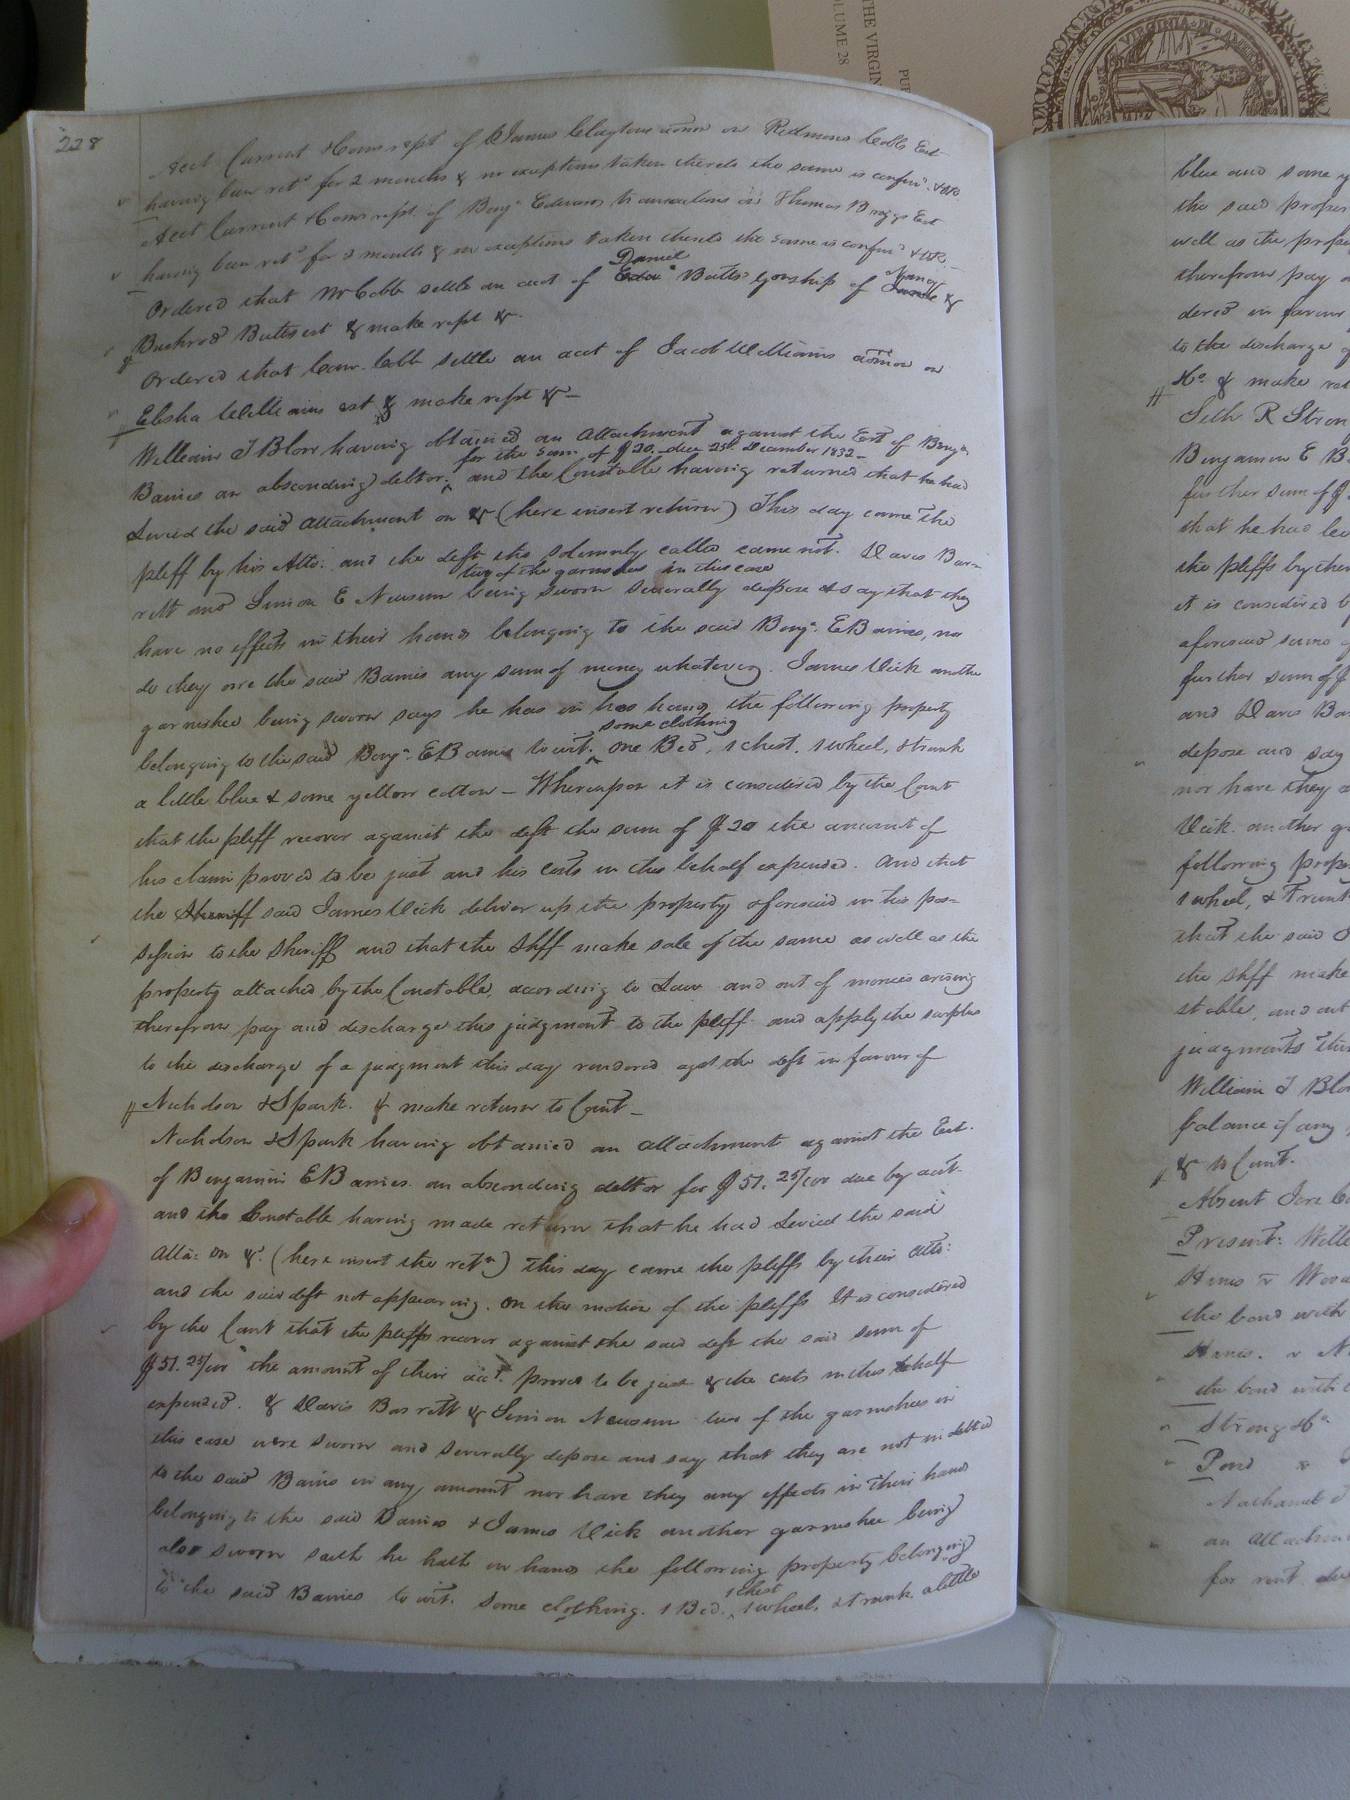 THE VIRGIN
VOLUME 28
PU
VIRGINIA · IN · AMER
228
Acct Current & Coms rept of James Claytons admn on Redmons Cobbs Est
having been retd for 2 months & no exceptions taken thereto the same is confird & OR.
Acct Current & Coms rept. of Benja Edwards transactions on Thomas Briggs Est
having been retd for 2 months & no exceptions taken thereto the same is confird & OR.
Daniel Nancy
Ordered that Mr Cobb settle an acct of Butts gdnship of &
Bushrod Butts est & make rept &c.
Ordered that Comr. Cobb settle an acct of Jacob Williams admn on
Elisha Williams est & make rept &c
William T Blow having obtained an attachment against the Est of Benja
for the sum of $20. due 25th December 1832
Barnes an absconding debtor; and the Constable having returned that he had
Levied the said attachment on &c (here insert return) This day came the
pltff by his Atto: and the deft tho solemnly called came not. Davis Bar=
two of the garnishees in this case
rett and Simon E Newsum being sworn severally depose & say that they
have no effects in their hands belonging to the said Benja. E Barnes, nor
do they owe the said Barnes any sum of money whatever. James Vick another
garnishee being sworn says he has in his hands the following property
some clothing
belonging to the said Benja. E Barnes to wit. one Bed, 1 chest. 1 wheel, & trunk
a little blue & some yellow cotton — Whereupon it is considered by the Court
that the pltff recover against the deft the sum of $20 the amount of
his claim proved to be just and his costs in this behalf expended. And that
the Sheriff said James Vick deliver up the property aforesaid in his pos=
session to the Sheriff and that the Shff make sale of the same as well as the
property attached by the Constable, according to Law and out of monies arising
therefrom pay and discharge this judgment to the pltff and apply the surplus
to the discharge of a judgment this day rendered agst the deft in favour of
Nicholson & Spark. & make return to Court —
Nicholson & Spark having obtained an attachment against the Est.
of Benjamin E Barnes an absconding debtor for $51. 25/100 due by acct.
and the Constable having made return that he had Levied the said
Atta: on &c. (here insert the retn) this day came the pltffs by their atto:
and the said deft not appearing. On the motion of the pltffs It is considered
by the Court that the pltffs recover against the said deft the said sum of
$51. 25/100 the amount of their acct. proved to be just & the costs in this behalf
expended. & Davis Barrett & Simon Newsum two of the garnishees in
this case were sworn and severally depose and say that they are not indebted
to the said Barnes in any amount nor have they any effects in their hands
belonging to the said Barnes & James Vick another garnishee being
also sworn saith he hath in hands the following property belonging
1 chest
to the said Barnes to wit. Some clothing. 1 Bed. 1 wheel. & trunk. a little
blue and some y
the said proper
well as the prope
therefrom pay a
dered in favour
to the discharge o
&c. & make ret
Seth R Stron
Benjamin E B
further sum of $
that he had lev
the pltffs by their
it is considered b
aforesaid sums o
further sum of $
and Davis Bar
depose and say
nor have they a
Vick another ga
following prope
1 wheel, & Trunk
that the said J
the shff make
stable, and out
judgments this
William T Blow
balance if any
& to Court.
Absent Jere C
Present: Will
the bond with
the bond with
Strong &c
Pond
Nathaniel
an attachm
for rent due